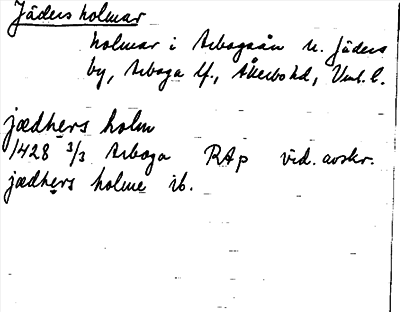 Jäders holmar
holmar i Arbogaån n. Jäders
by, Arboga lf., Åkerbo hd, Vml. l.
jædhers holm
1428 3/3 Arboga RAp vid. avskr.
jædhers holme ib.